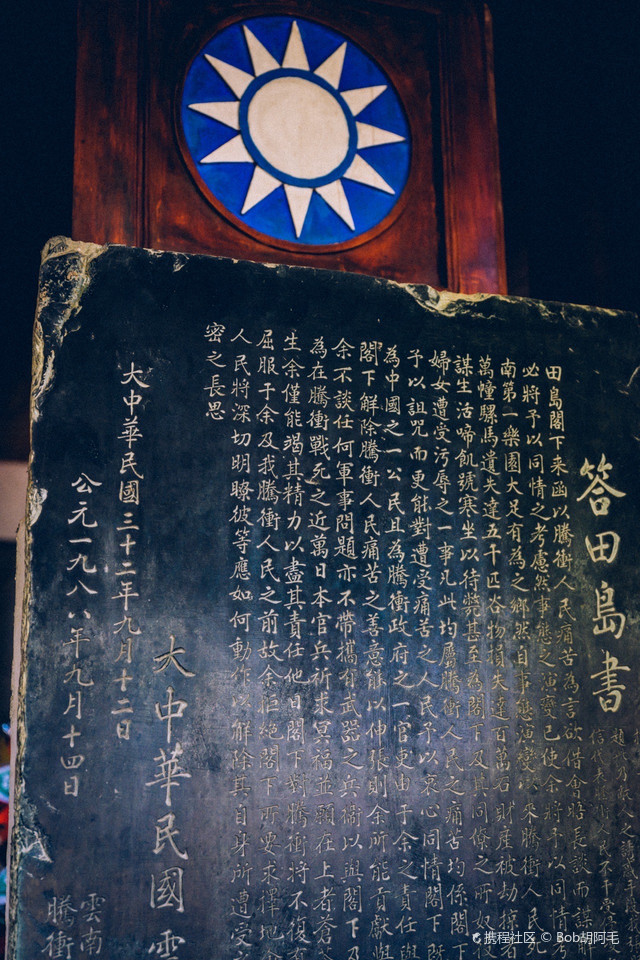 答田島書
田島閣下来函以騰衝人民痛苦為言欲借會晤長談而謀解
必將予以同情之考慮然事態之演變已使余將予以同情考
南第一樂園大足有為之鄉然自事態演變以來騰衝人民死
萬幢騾馬遺失達五千匹谷物損失達百萬石財産被劫掠者
謀生活啼飢號寒坐以待斃甚至為閣下及其同僚之所奴役
婦女遭受污辱之一事凡此均屬騰衝人民之痛苦均係閣下
予以詛咒而更能對遭受痛苦之人民予以哀心同情閣下既
為中國之一公民且為騰衝政府之一官吏由于余之責任與
閣下解除騰衝人民痛苦之善意能以伸張則余所能貢獻與
余不談任何軍事問題亦不帶攜有武器之兵衛以與閣下及
為在騰衝戰死之近萬日本官兵祈求冥福並願在上者蒼
生余僅能竭其精力以盡其責任他日閣下對騰衝將不復有
屈服于余及我騰衝人民之前故余拒絕閣下所要求擇地會
人民將深切明瞭彼等應如何動作以解除其自身所遭受
密之長思
大中華民國雲
大中華民國三十二年九月十二日
公元一九八八年九月十四日
雲南
騰衝
携程社区 © Bob胡阿毛